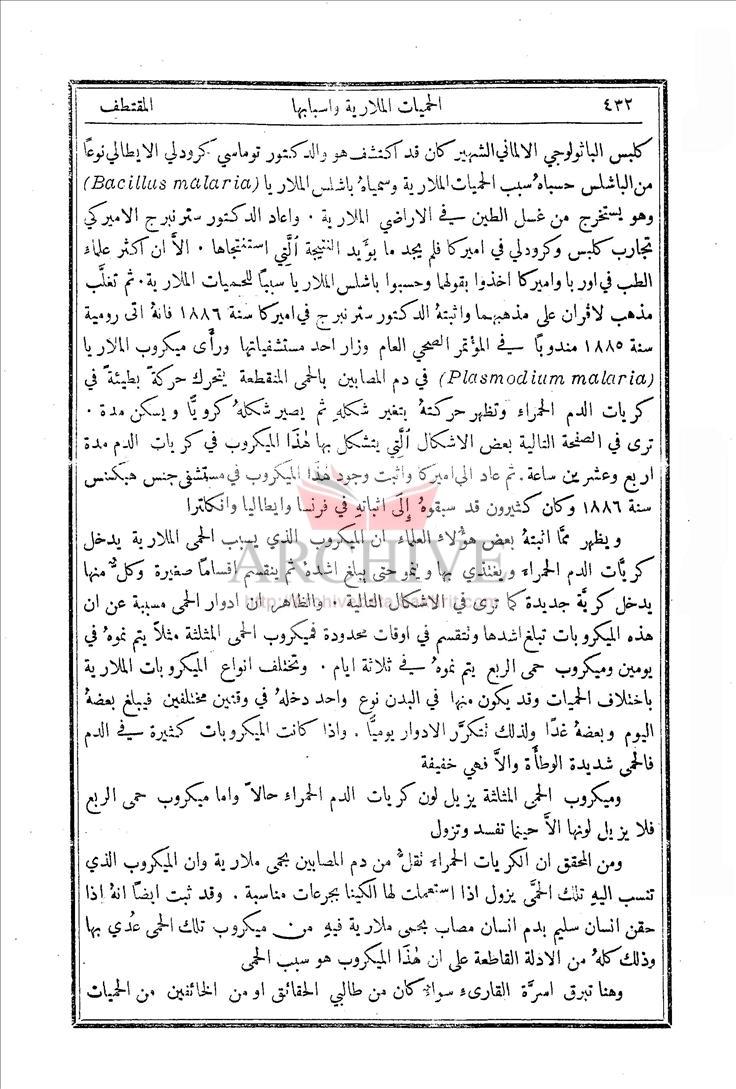 ٤٣٢ الحميات الملارية واسبابها المقتطف
كلبس الباثولوجي الالماني الشهير كان قد اكتشف هو والدكتور توماسي كرودلي الايطالي نوعًا
من الباشلس حسباهُ سبب الحميات الملارية وسمياهُ باشلس الملاريا (Bacillus malaria)
وهو يستخرج من غسل الطين في الاراضي الملارية . واعاد الدكتور سترنبرج الاميركي
تجارب كلبس وكرودلي في اميركا فلم يجد ما يؤيد النتيجة ٱلَّتي استنتجاها . الاَّ ان اكثر علماء
الطب في اوربا واميركا اخذوا بقولها وحسبوا باشلس الملاريا سببًا للحميات الملارية. ثم تغلَّب
مذهب لافران على مذهبهما واثبتهُ الدكتور سترنبرج في اميركا سنة ١٨٨٦ فانهُ اتى رومية
سنة ١٨٨٥ مندوبًا في المؤتمر الصحي العام وزار احد مستشفياتها ورأى ميكروب الملاريا
(Plasmodium malaria) في دم المصابين بالحمى المنقطعة يتحرك حركةً بطيئةً في
كريات الدم الحمراء وتظهر حركتهُ بتغير شكلهِ ثم يصير شكلهُ كرويًّا ويسكن مدة .
ترى في الصفحة التالية بعض الاشكال ٱلَّتي يتشكل بها هٰذا الميكروب في كريات الدم مدة
اربع وعشرين ساعة. ثم عاد الى اميركا واثبت وجود هٰذا الميكروب في مستشفى جنس هبكنس
سنة ١٨٨٦ وكان كثيرون قد سبقوهُ إِلَى اثباتهِ في فرنسا وايطاليا وانكلترا
ويظهر ممَّا اثبتهُ بعض هؤلاء العلماء ان الميكروب الذي يسبب الحمى الملارية يدخل
كريَّات الدم الحمراء ويغتذي بها وينمو حتى يبلغ اشدهُ ثم ينقسم اقسامًا صغيرة وكلٌّ منها
يدخل كريَّة جديدة كما ترى في الاشكال التالية . والظاهر ان ادوار الحمى مسببة عن ان
هذه الميكروبات تبلغ اشدها وتنقسم في اوقات محدودة فميكروب الحمى المثلثة مثلاً يتم نموهُ في
يومين وميكروب حمى الربع يتم نموهُ في ثلاثة ايام . وتختلف انواع الميكروبات الملارية
باختلاف الحميات وقد يكون منها في البدن نوع واحد دخلهُ في وقتين مختلفين فيبلغ بعضهُ
اليوم وبعضهُ غدًا ولذلك تتكرَّر الادوار يوميًّا . واذا كانت الميكروبات كثيرة في الدم
فالحمى شديدة الوطأة والاَّ فهي خفيفة
وميكروب الحمى المثالثة يزيل لون كريات الدم الحمراء حالاً واما ميكروب حمى الربع
فلا يزيل لونها الاَّ حينما تفسد وتزول
ومن المحقق ان الكريات الحمراء تقلُّ من دم المصابين بحمى ملارية وان الميكروب الذي
تنسب اليهِ تلك الحمَّى يزول اذا استعملت لها الكينا بجرعات مناسبة . وقد ثبت ايضًا انهُ اذا
حقن انسان سليم بدم انسان مصاب بحمى ملارية فيهِ من ميكروب تلك الحمى عُدي بها
وذلك كلهُ من الادلة القاطعة على ان هٰذا الميكروب هو سبب الحمى
وهنا تبرق اسرَّة القارىء سواءٌ كان من طالبي الحقائق او من الخائفين من الحميات
ARCHIVE